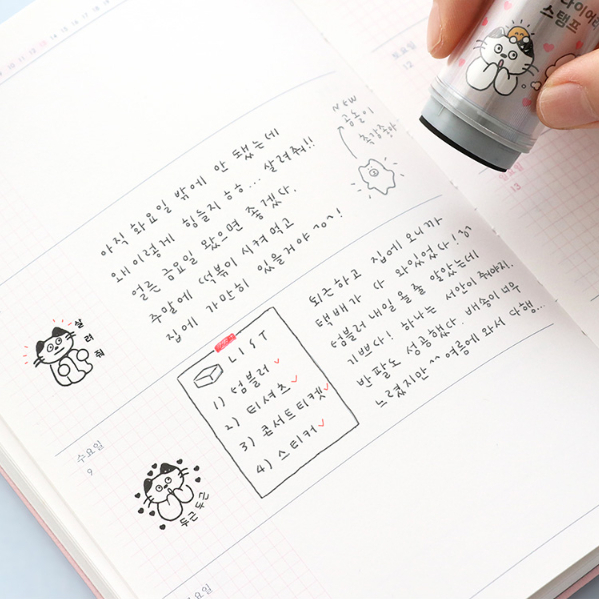 다이어리
스탬프
토요일
12
일요일
13
아직 화요일 밖에 안 됐는데
왜 이렇게 힘들지 ㅎㅎ... 살려줘!!
얼른 금요일 왔으면 좋겠다.
주말에 떡볶이 시켜 먹고
집에 가만히 있을거야 ^_^!
New
공놀이
촉감촉아
살려줘
퇴근하고 집에 오니까
택배가 다 와있었다!
텀블러 내일 올 줄 알았는데
기쁘다! 하나는 서안이 줘야지.
반팔도 성공했다. 배송이 너무
느렸지만 ^^ 여름에 와서 다행...
LIST
1) 텀블러 ✓
2) 티셔츠 ✓
3) 콘서트티켓 ✓
4) 스티커 ✓
수요일
9
두근두근